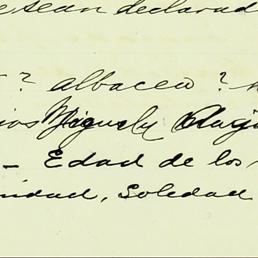 sean declarad
? albacea ?
Miguel y
- Edad de los
nidad, Soledad